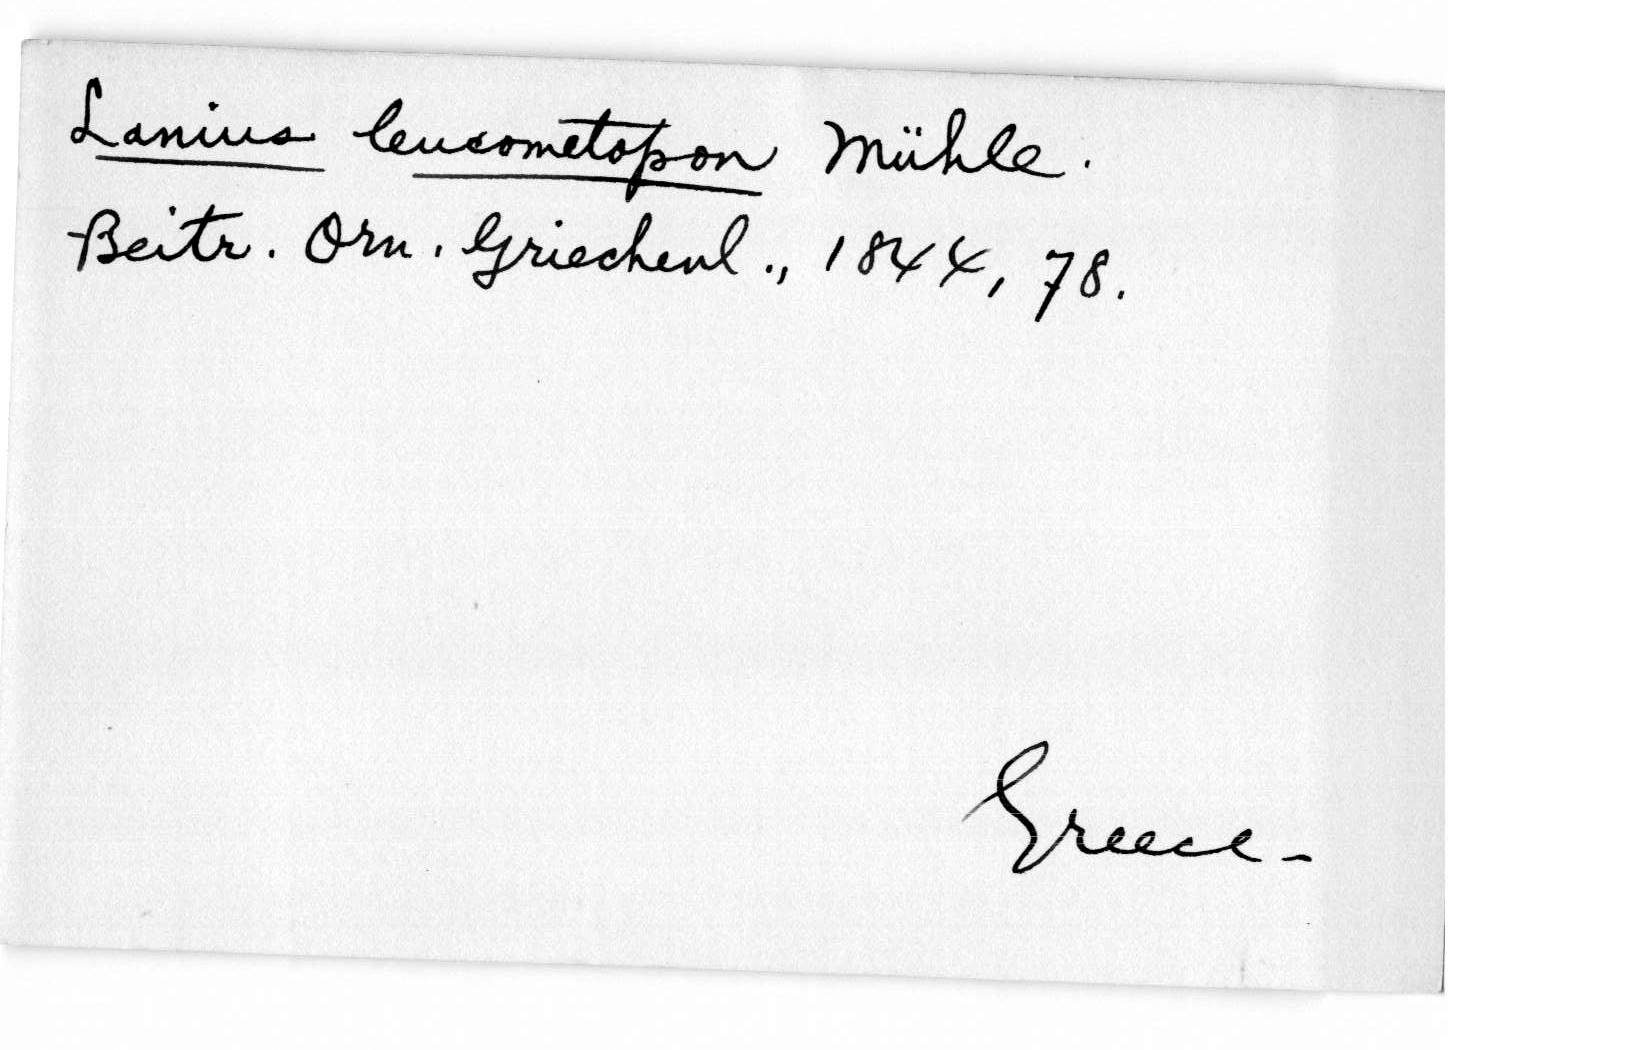 Lanius leucometopon Mühle.
Beitr. Orn. Griechenl., 1844, 78.
Greece-